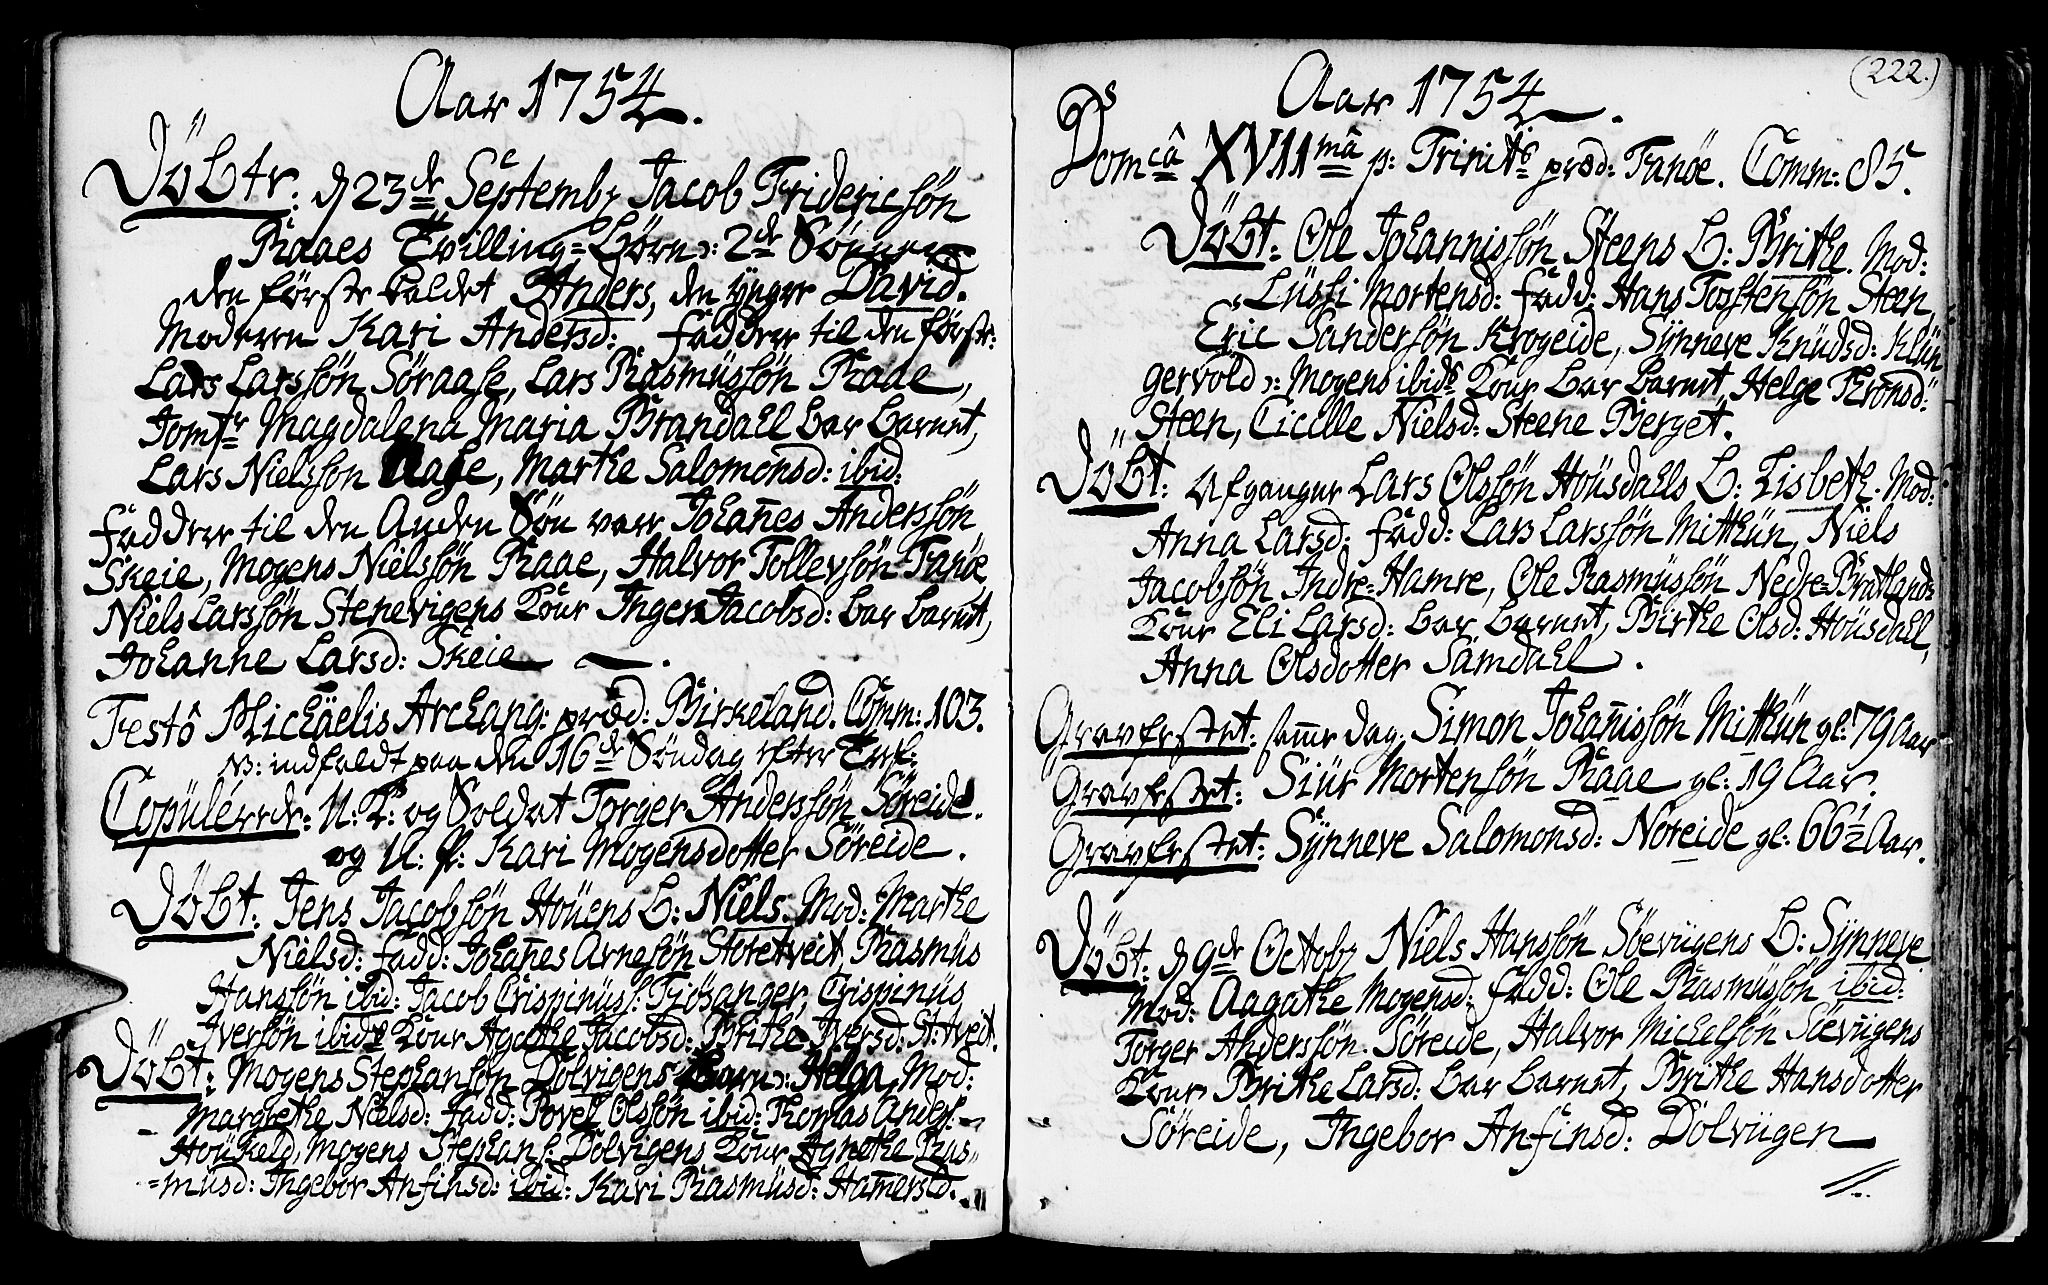 Aar 1754.
Döbte: d 23de Septembr Jacob Fridericsön
Raaes Tvilling=Börn ɔ: 2de Sönner
den förste kaldet Anders, den yngre David.
Moderen Kari Andersd: Faddere til den förste:
Lars Larssön Söraase, Lars Rasmüssön Raae,
Jomfr Magdalena Maria Brandahl bar barnet,
Lars Nielsson Aase, Marthe Salomonsd: ibid:
Faddere til den Anden Sön vare Johañes Anderssön
Skeie, Mogens Nielssön Raae, Halvor Tollevsön Fanöe,
Niels Larssön Stenevigens Kone Inger Jacobsd: bar barnet,
Johanne Larsd: Skeie.
Festô Michäelis Archang: præd: Birkeland. Comm: 103.
NB: indfaldt paa den 16de Söndag efter Tref:
Copülerede: U: K: og Soldat Torger Anderssön Söreide.
og U: P: Kari Mogensdotter Söreide.
Döbt: Jens Jacobsön Höüens B: Niels. Mod: Marthe
Nielsd: Fadd: Johañes Arnesön Storetveit, Rasmüs
Hanssön ibid: Jacob Crispinüs S: Tjösanger, Crispinüs
Iversön ibids Kone Agathe Jacobsd: Brithe Iversd: St:tveit.
Döbt: Mogens Stephansön Dolvigens Barn: Helga, Mod:
Margrethe Nielsd: Fadd: Povel Olssön ibid: Thomas Anders:
Höükeld, Mogens Stephans: Dolvigens Kone Agnethe Ras=
=müsd: Ingebor Anfinsd: ibid: Kari Rasmüsd: Hamersld.
(222.)
Aar 1754.
Ds
Domcâ XVIImâ p: Trinits præd: Fanöe. Comm: 85.
Döbt: Ole Johannissön Steens B: Brithe. Mod:
Lüssi Mortensd: Fadd: Hans Torstensön Steen,
Eric Sandersön Krogeide, Sÿnneve Knüdsd: Klün
gervold ɔ: Mogens ibids Kone bar barnet, Helge Thronsd:
Steen, Cicille Nielsd: Steene Berget.
Döbt: Afgangne Lars Olssön Höüsdahls B: Lisbeth. Mod:
Anna Larsd: Fadd: Lars Larssön Mitthün, Niels
Jacobsön Indre=Hamre, Ole Rasmüssön Nedre=Bratlands
Kone Eli Larsd: bar barnet, Birthe Olsd: Höüsdahl,
Anna Olsdotter Samdahl.
Gravfestet: sam̃e dag. Simon Johañissön Mitthün gl: 79 Aar
Gravfestet: Siür Mortensön Raae gl: 19 Aar.
Gravfestet: Sÿnneve Salomonsd: Noreide gl: 66½ Aar.
Döbt: d 9de Octobr Niels Hanssön Söevügens B: Sÿnneve
Mod: Aagathe Mogensd: Fadd: Ole Rasmüssön ibid:
Torger Anderssön Söreide, Halvor Michelsön Söevügens
Kone Brithe Larsd: bar barnet, Brithe Hansdotter
Söreide, Ingebor Anfinsd: Dolvügen